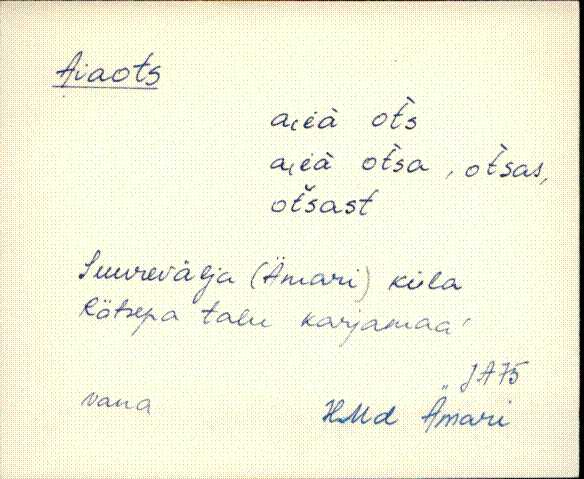 Aiaots
aiɛ̀ä ot̀s
aiɛ̀ä ot̀sa, ot̀sas,
ot̀sast
Suurevälja (Ämari) küla
Rätsepa talu karjamaa
JA75
vana
HMd Ämari